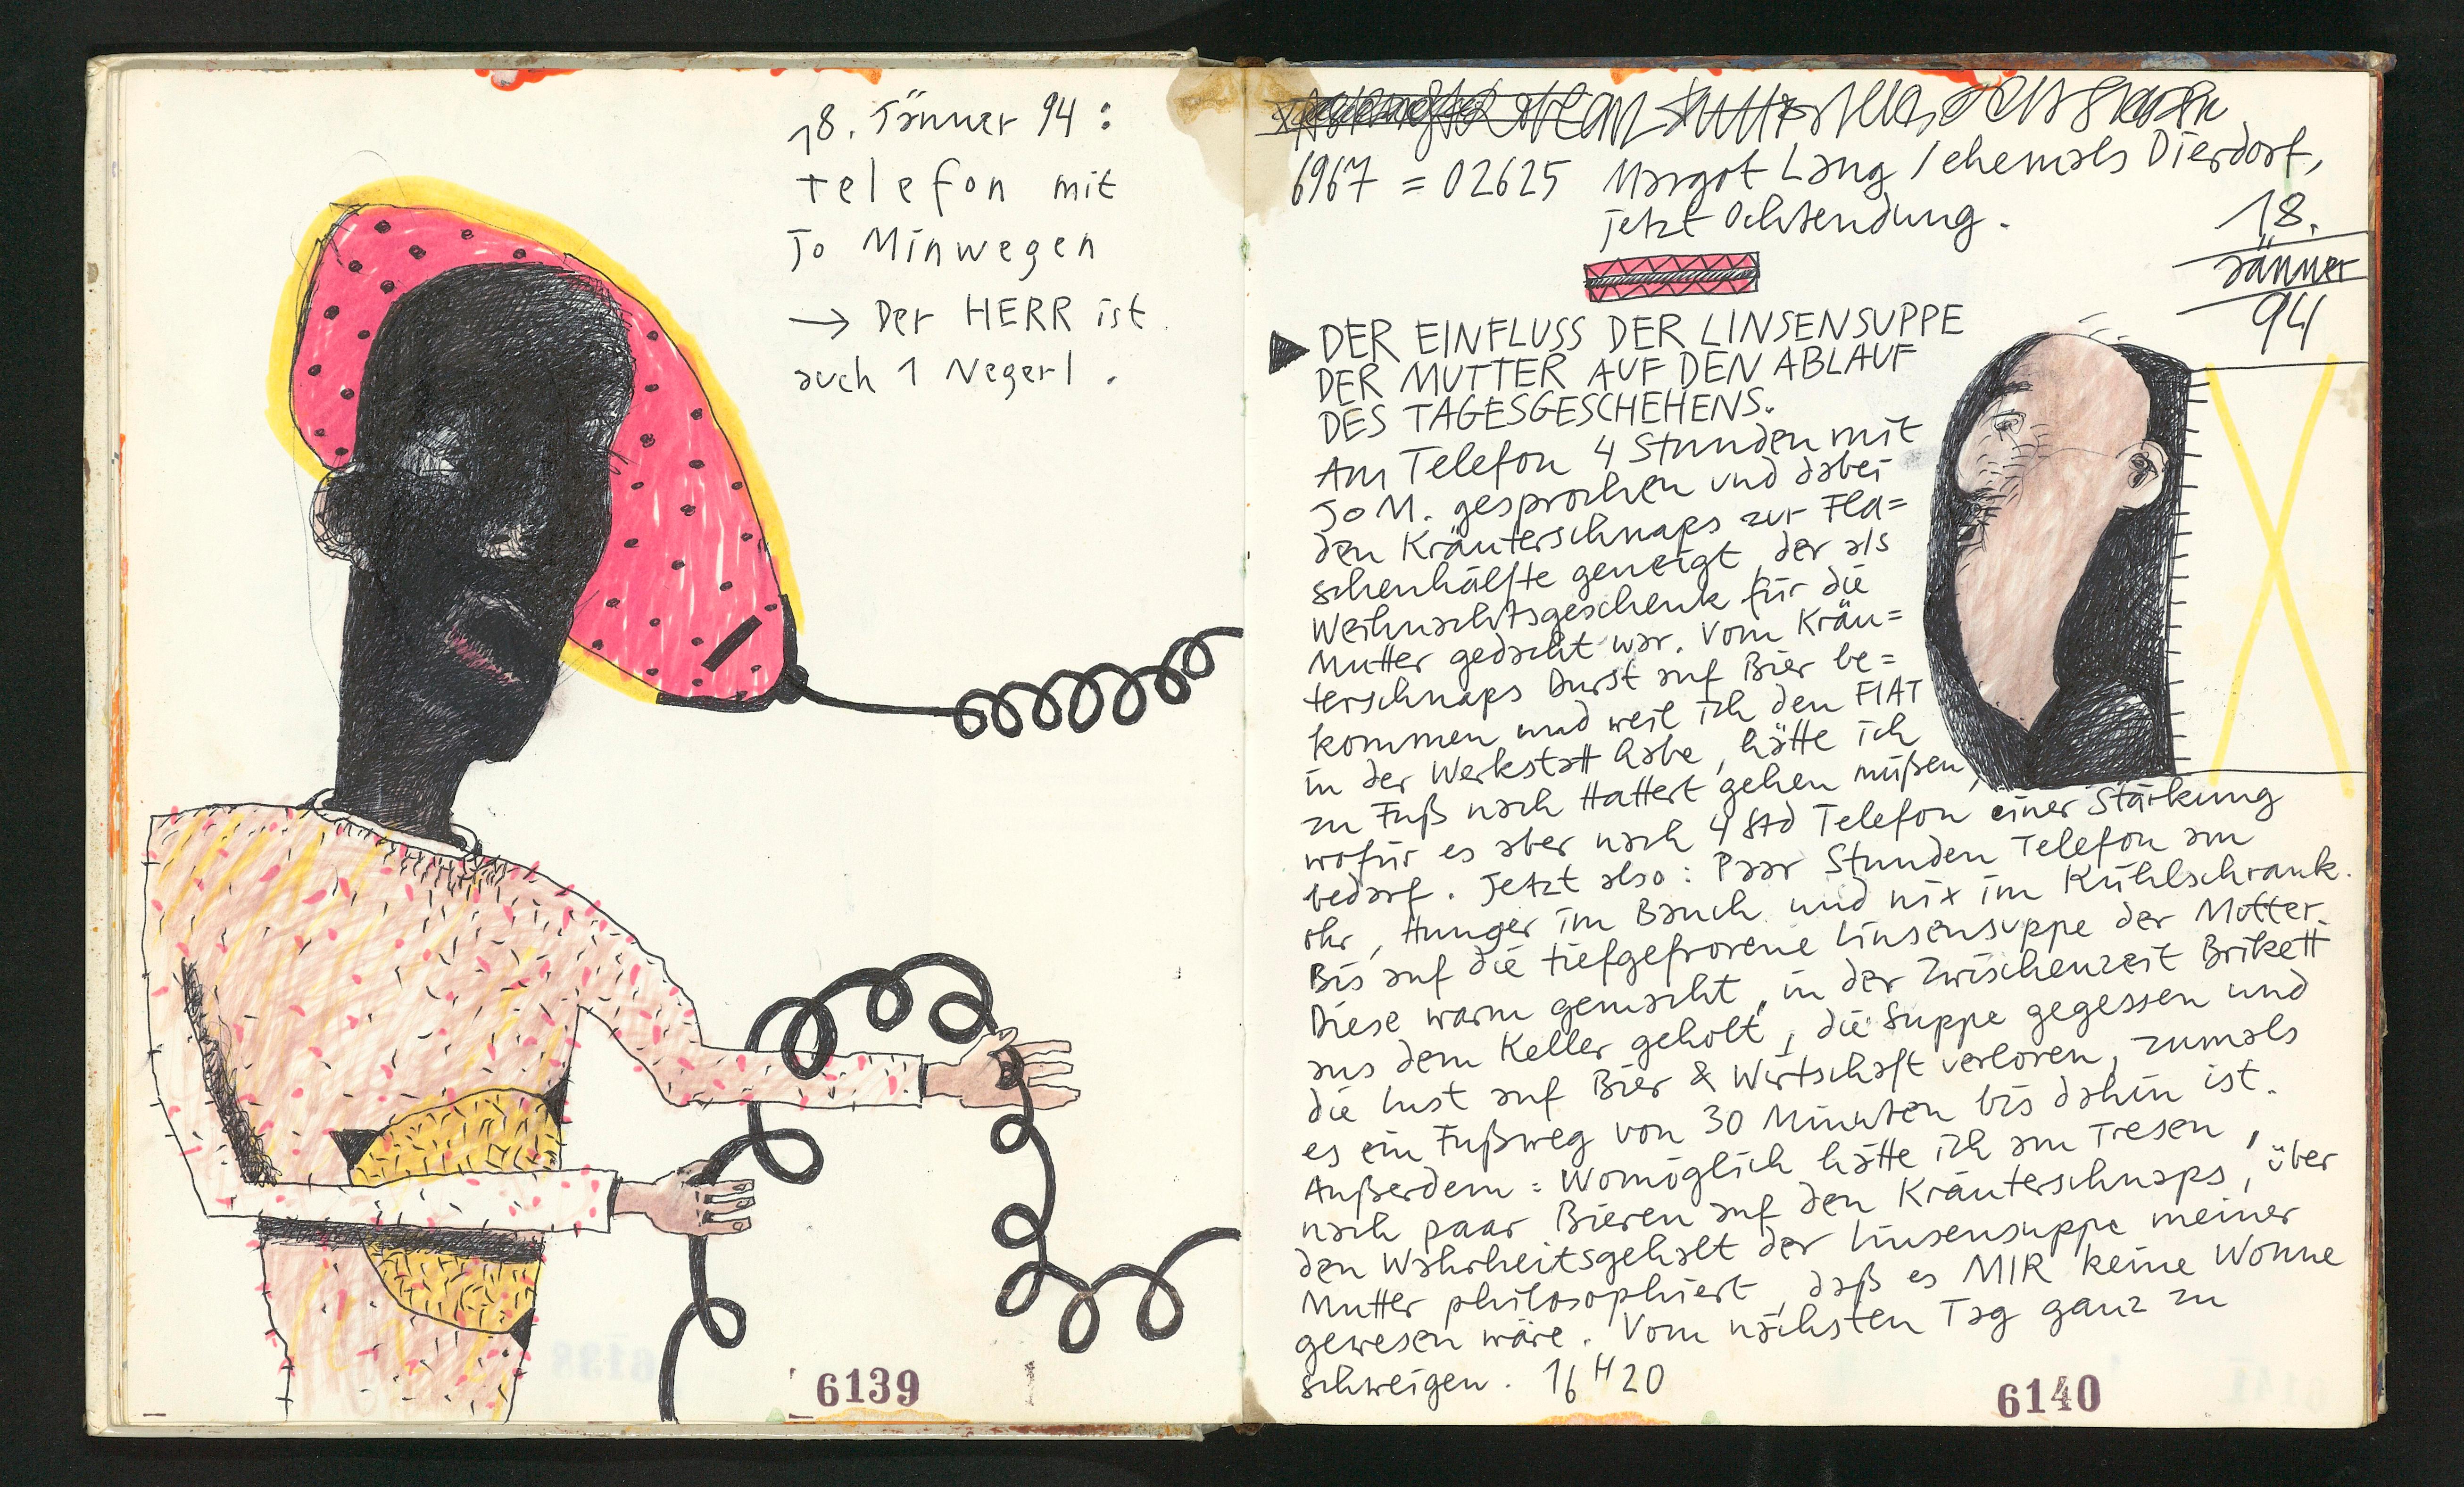 18. Jänner 94 :
Telefon mit
Jo Minwegen
→ Der HERR ist
auch 1 Negerl .
6139
6967 = 02625 Margot Lang / ehemals Dierdorf,
jetzt Ochtendung .
18.
Jänner
94
▶ DER EINFLUSS DER LINSENSUPPE
DER MUTTER AUF DEN ABLAUF
DES TAGESGESCHEHENS.
Am Telefon 4 Stunden mit
Jo M. gesprochen und dabei
den Kräuterschnaps zur Fla=
schenhälfte geneigt, der als
Weihnachtsgeschenk für die
Mutter gedacht war. Vom Kräu=
terschnaps Durst auf Bier be=
kommen und weil ich den FIAT
in der Werkstatt habe, hätte ich
zu Fuß nach Hattert gehen müßen,
wofür es aber nach 4 Std Telefon einer Stärkung
bedarf. Jetzt also: Paar Stunden Telefon am
Ohr, Hunger im Bauch und nix im Kühlschrank.
Bis auf die tiefgefrorene Linsensuppe der Mutter.
Diese warm gemacht, in der Zwischenzeit Brikett
aus dem Keller geholt, die Suppe gegessen und
die Lust auf Bier & Wirtschaft verloren, zumals
es ein Fußweg von 30 Minuten bis dahin ist.
Außerdem: Womöglich hätte ich am Tresen,
nach paar Bieren auf den Kräuterschnaps, über
den Wahrheitsgehalt der Linsensuppe meiner
Mutter philosophiert, daß es MIR keine Wonne
gewesen wäre. Vom nächsten Tag ganz zu
schweigen. 16 H 20
6140